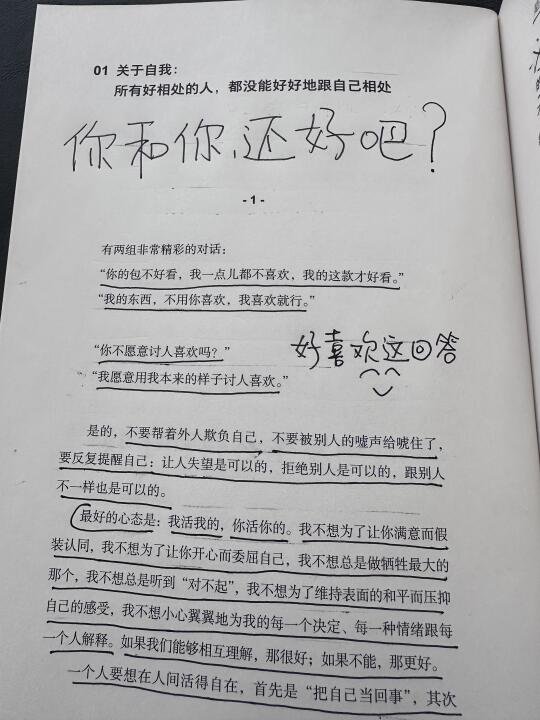 01 关于自我：
所有好相处的人，都没能好好地跟自己相处
你和你，还好吧？
- 1 -
有两组非常精彩的对话：
“你的包不好看，我一点儿都不喜欢，我的这款才好看。”
“我的东西，不用你喜欢，我喜欢就行。”
“你不愿意讨人喜欢吗？”
好喜欢这回答
“我愿意用我本来的样子讨人喜欢。”
是的，不要帮着外人欺负自己，不要被别人的嘘声给唬住了，
要反复提醒自己：让人失望是可以的，拒绝别人是可以的，跟别人
不一样也是可以的。
最好的心态是：我活我的，你活你的。我不想为了让你满意而假
装认同，我不想为了让你开心而委屈自己，我不想总是做牺牲最大的
那个，我不想总是听到“对不起”，我不想为了维持表面的和平而压抑
自己的感受，我不想小心翼翼地为我的每一个决定、每一种情绪跟每
一个人解释。如果我们能够相互理解，那很好；如果不能，那更好。
一个人要想在人间活得自在，首先是“把自己当回事”，其次